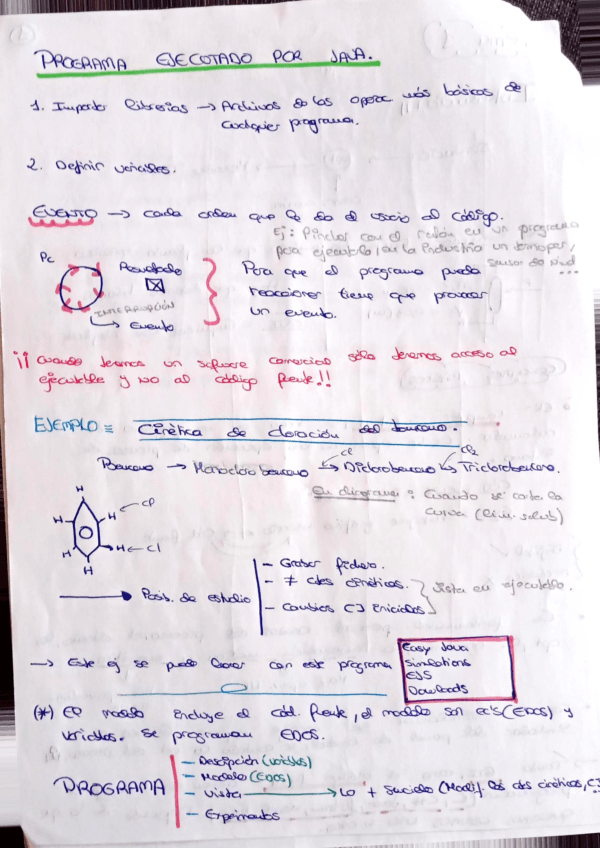 1
PROGRAMA EJECUTADO POR JAVA.
1. Importar librerías → Archivos de las operac más básicas de
cualquier programa.
2. Definir variables.
EVENTO → cada orden que le da el usuario al código.
Ej: Pinchar con el ratón en un programa
para ejecutarlo, en la industria un temper,
sensor de nivel ...
Pc
Resultado
INTERRUPCIÓN
→ Evento
Para que el programa pueda
reaccionar tiene que provocar
un evento.
¡¡ Cuando tenemos un software comercial sólo tenemos acceso al
ejecutable y NO al código fuente!!
EJEMPLO ≡ Cinética de cloración del benceno.
Cl Cl2
Benceno → Monoclorobenceno → Diclorobenceno → Triclorobenceno.
En diagrama: Cuando se corta la
curva (lím. solub)
H
H H ← Cl
H H ← Cl
H
→ Posib. de estudio
- Grabar fichero.
- ≠ ctes cinéticas.
- Cambios [ ] iniciales
Vista en ejecutable.
→ Este ej se puede bajar con este programa
Easy Java
Simulations
EJS
Downloads
(*) El modelo incluye el cód. fuente, el modelo son ec's (EDOS) y
variables. Se programan EDOS.
PROGRAMA
- Descripción (variables)
- Modelo (EDOS)
- Vista → Lo + sencillo (Modif. las ctes cinéticas, [ ]
- Experimentos